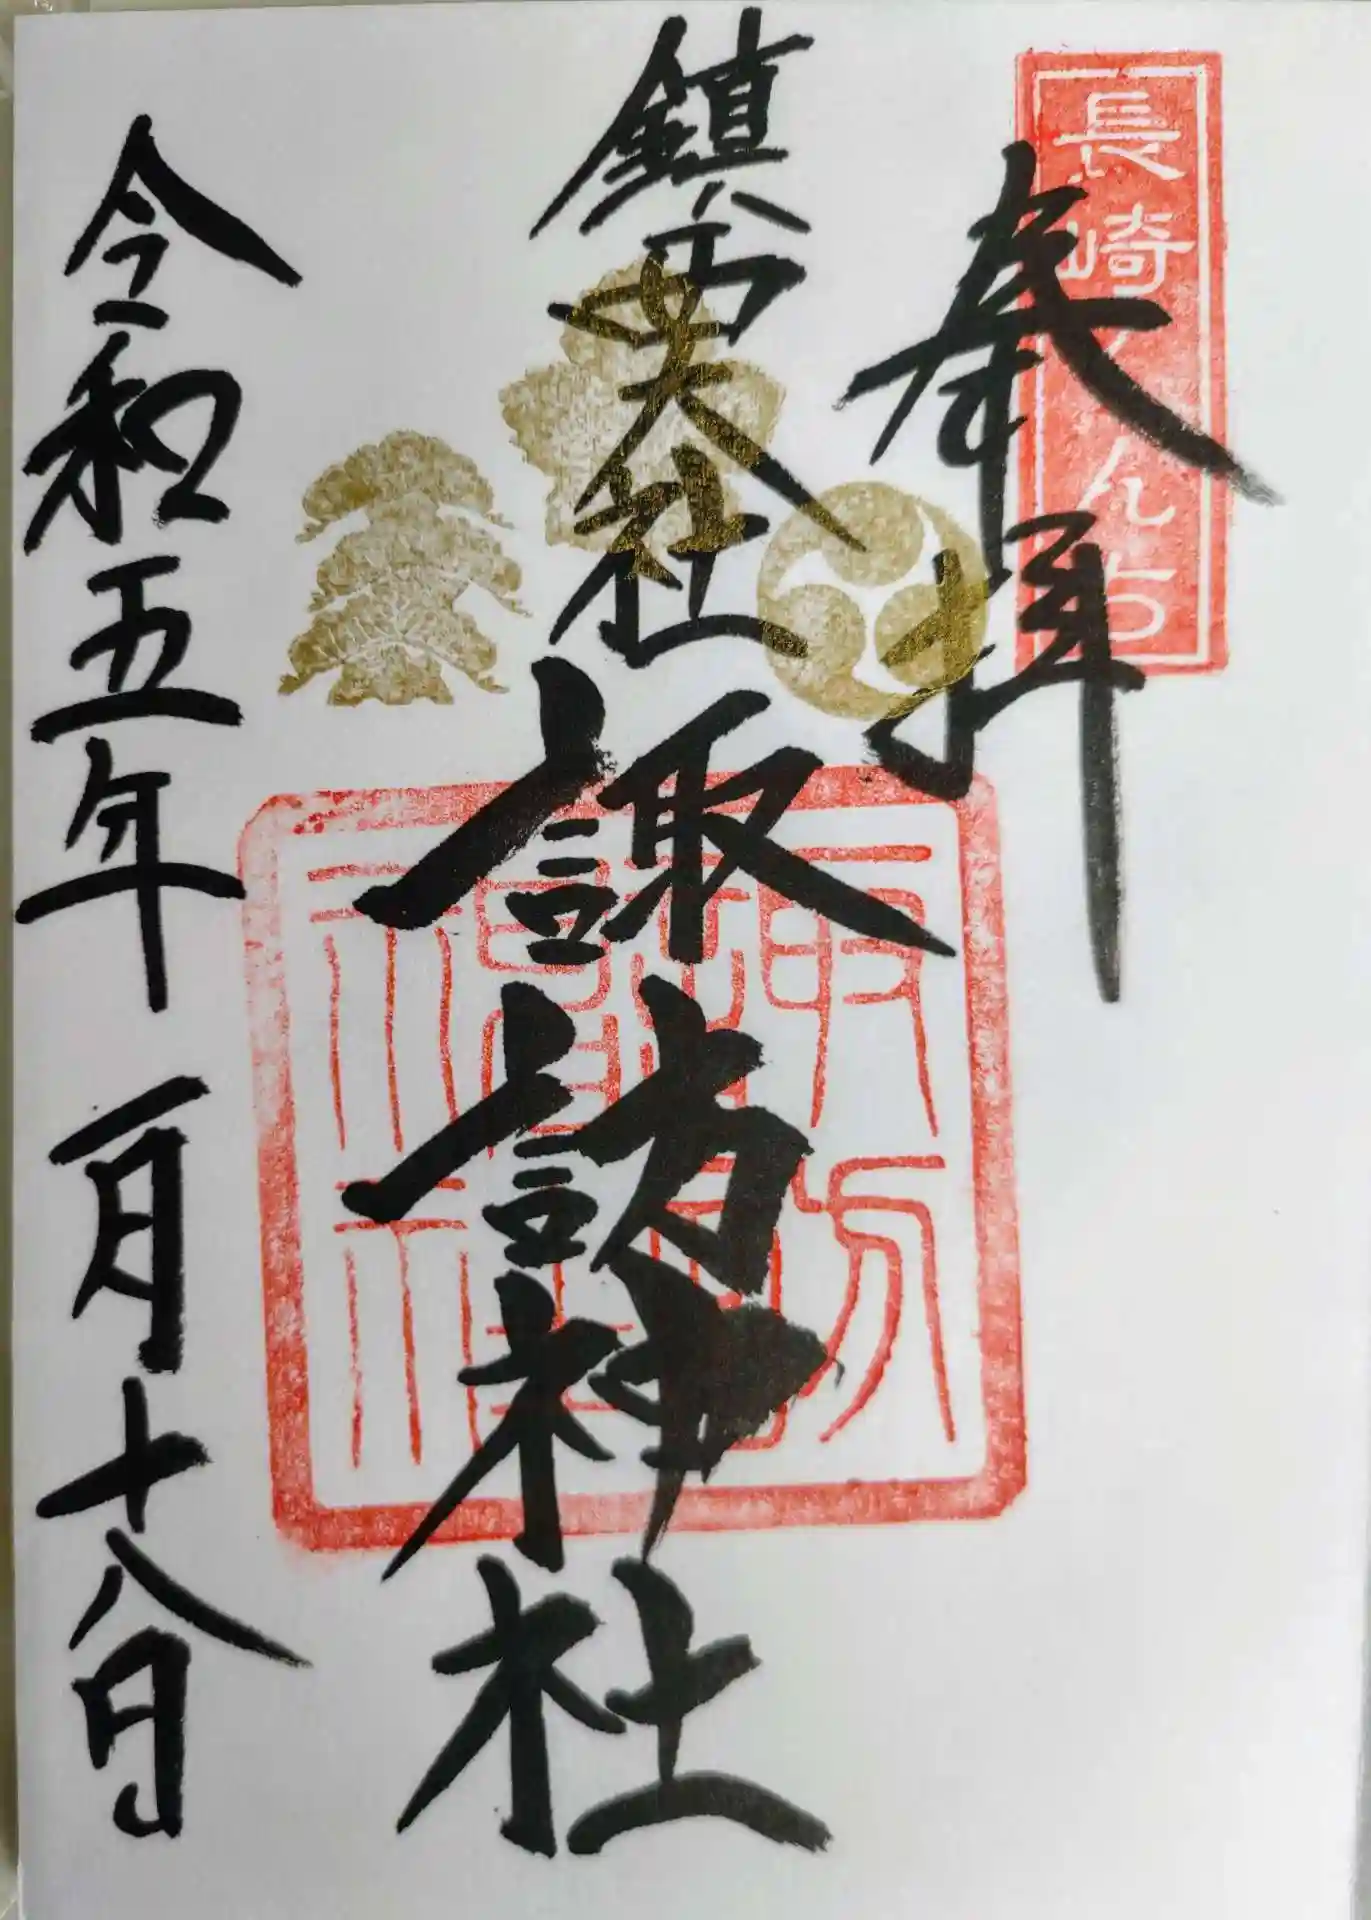 長崎くんち
奉拝
鎮西大社
諏訪神社
諏訪
神社
令和五年一月十八日